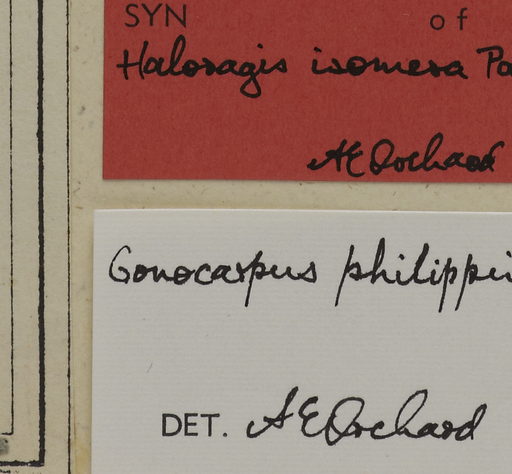 SYN of
Haloragis isomera Pa
AEOrchard
Gonocarpus philippi
DET. AEOrchard